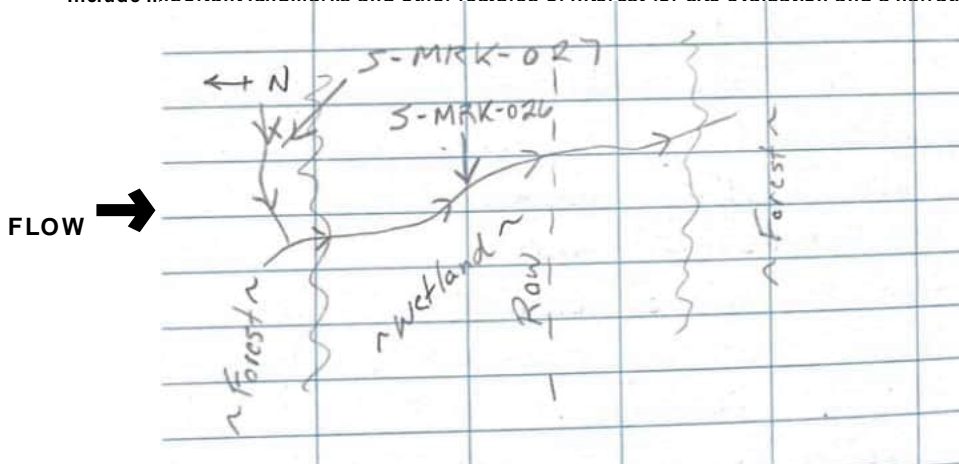 ← N
S-MRK-027
S-MRK-026
FLOW
~ Forest ~
~ Wetland ~
Row
~ Forest ~